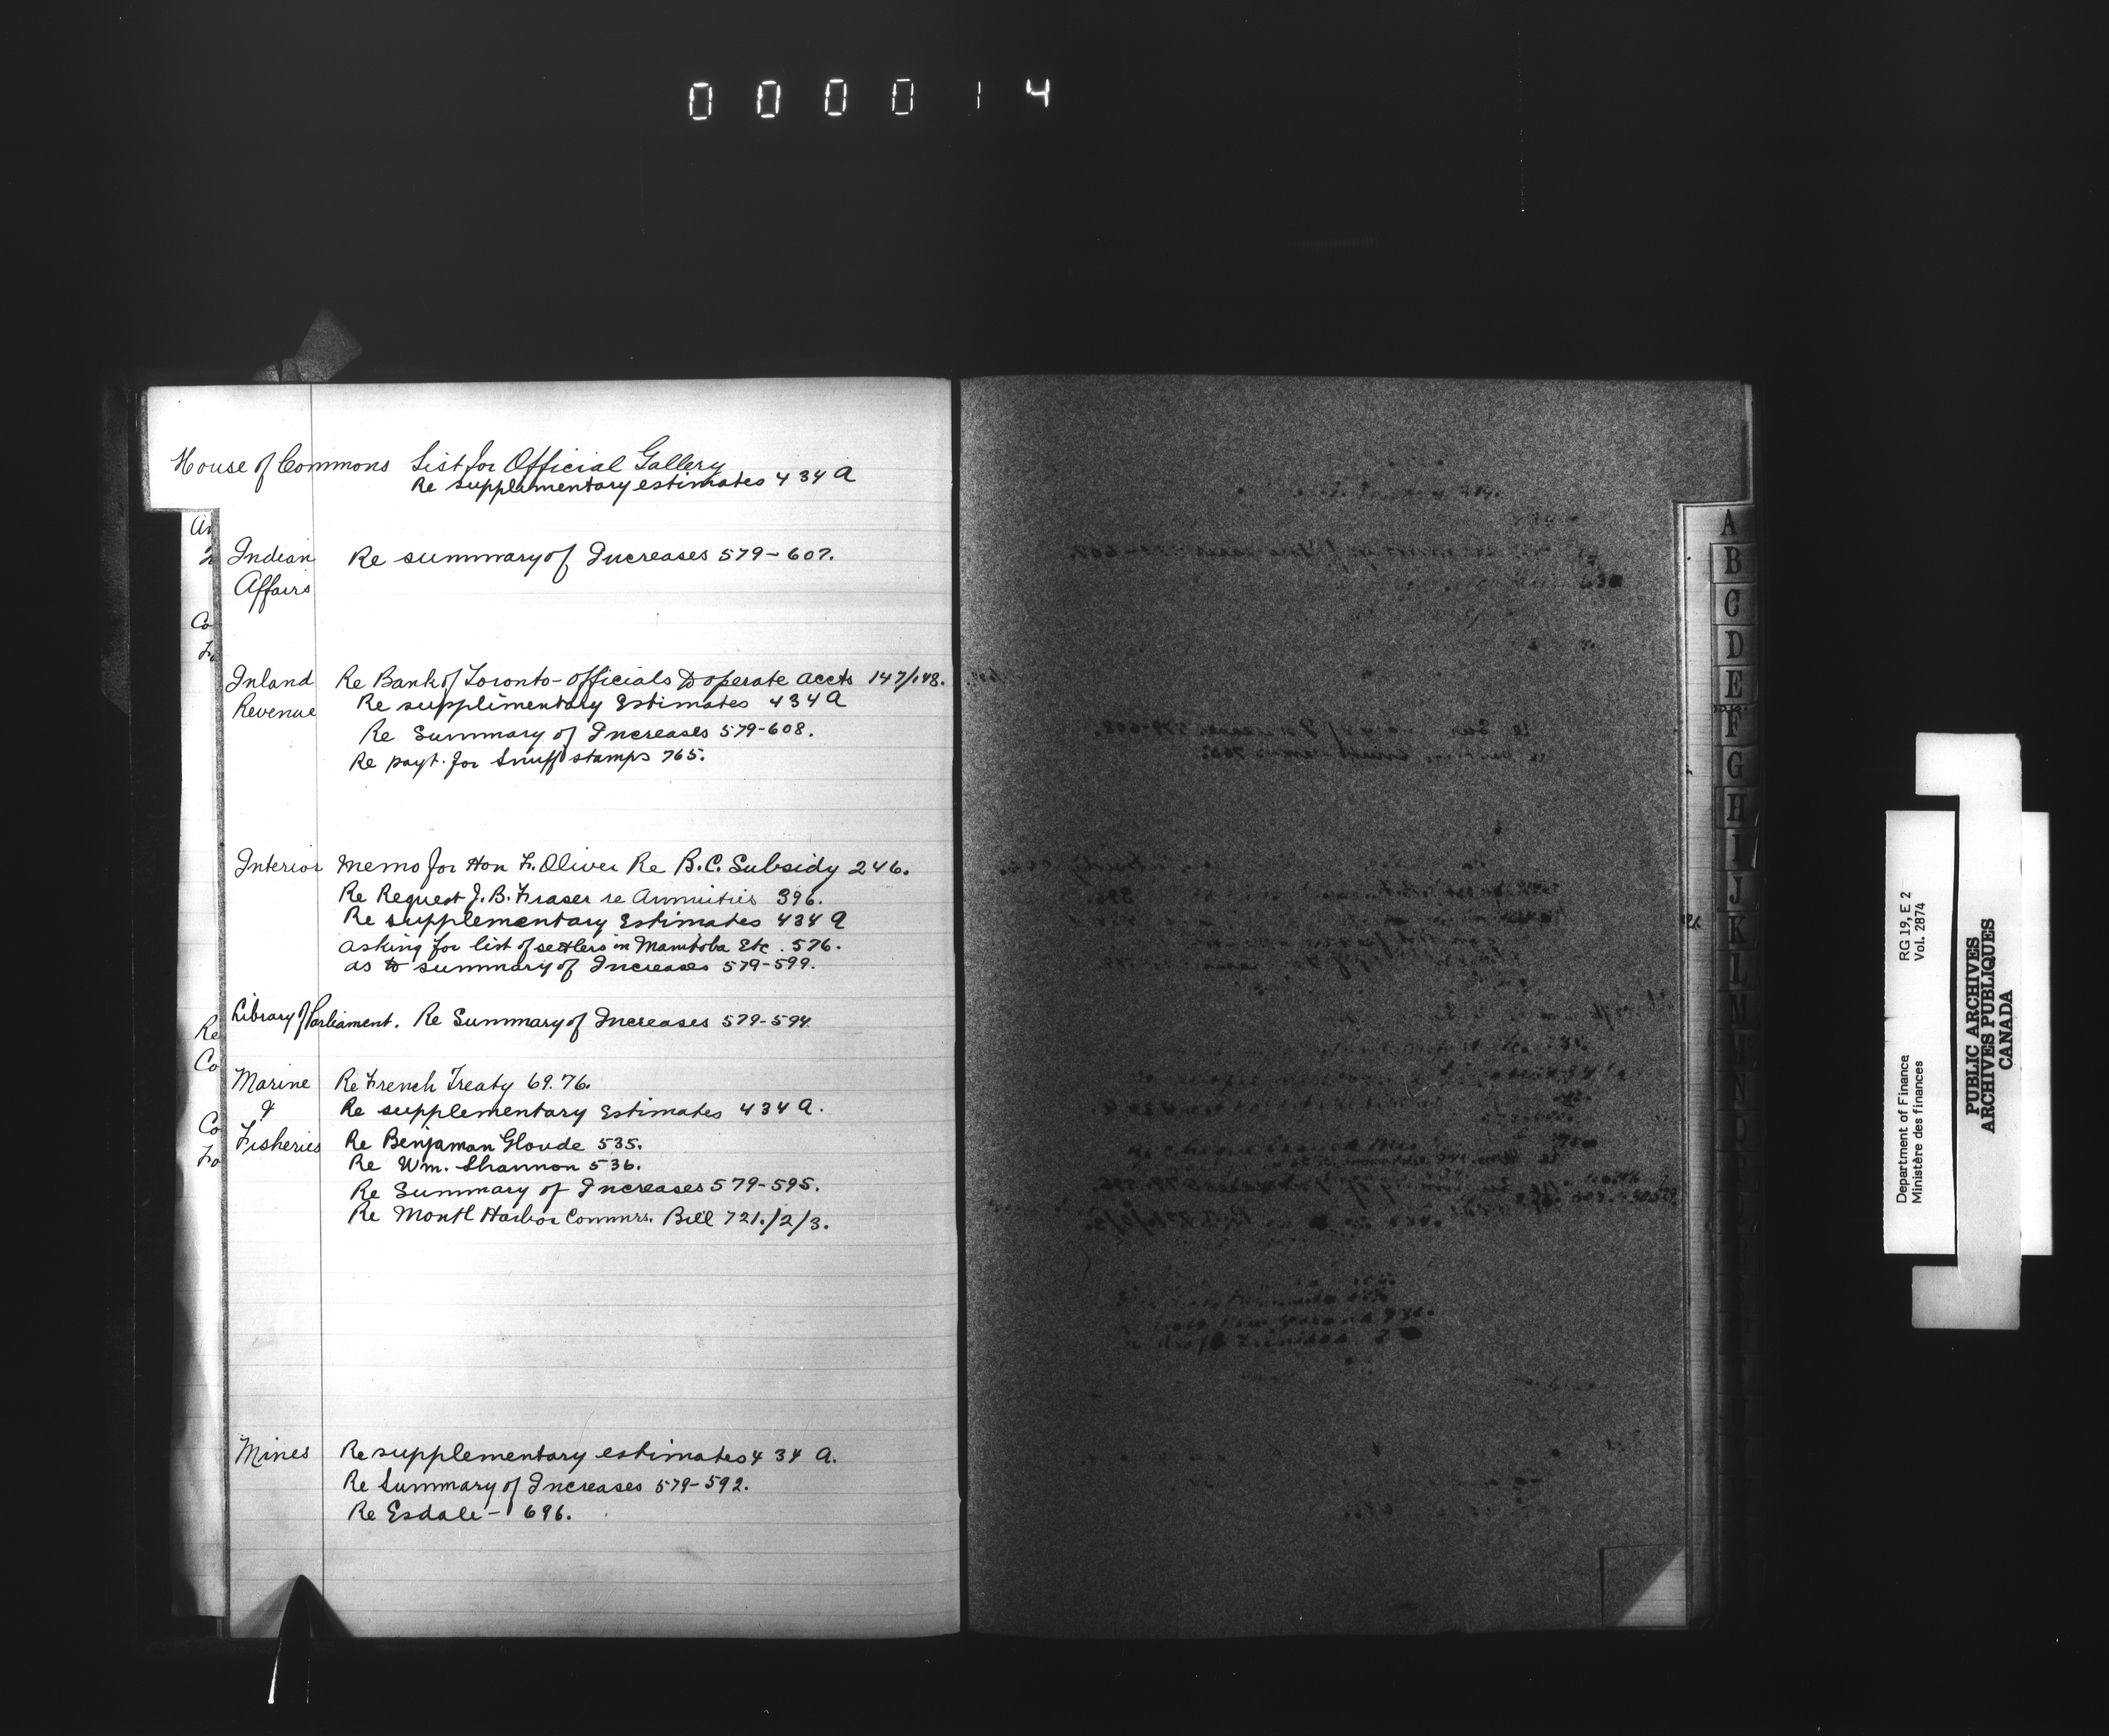 000014
House of Commons List for Official Gallery
Re supplementary estimates 434 A
Indian Re summary of Increases 579-607.
Affairs
Inland Re Bank of Toronto - Officials to operate accts 147/148.
Revenue Re supplimentary Estimates 434 A
Re Summary of Increases 579-608.
Re payt. for Snuff stamps 765.
Interior Memo for Hon F. Oliver Re B.C. Subsidy 246.
Re Request J. B. Fraser re Annuities 396.
Re supplementary Estimates 434 A
asking for list of settlers in Manitoba Etc. 576.
as to summary of Increases 579-599.
Library of Parliament. Re Summary of Increases 579-594
Marine Re French Treaty 69.76.
& Re supplementary Estimates 434 A.
Fisheries Re Benjaman Gloude 535.
Re Wm. Shannon 536.
Re Summary of Increases 579-595.
Re Montl Harbor Commrs. Bill 721./2/3.
Mines Re supplementary estimates 434 A.
Re Summary of Increases 579-592.
Re Esdale - 696.
Co
Re
Co
Co
Fo
A
B
C
D
E
F
G
H
I
J
K
L
M
N
O
Department of Finance RG 19, E 2
Ministère des finances Vol. 2874
PUBLIC ARCHIVES
ARCHIVES PUBLIQUES
CANADA